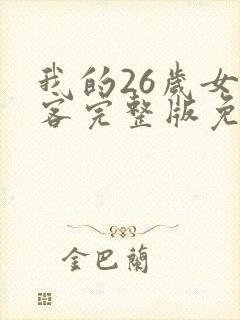 我的26歲女
客完整版免
金巴蘭